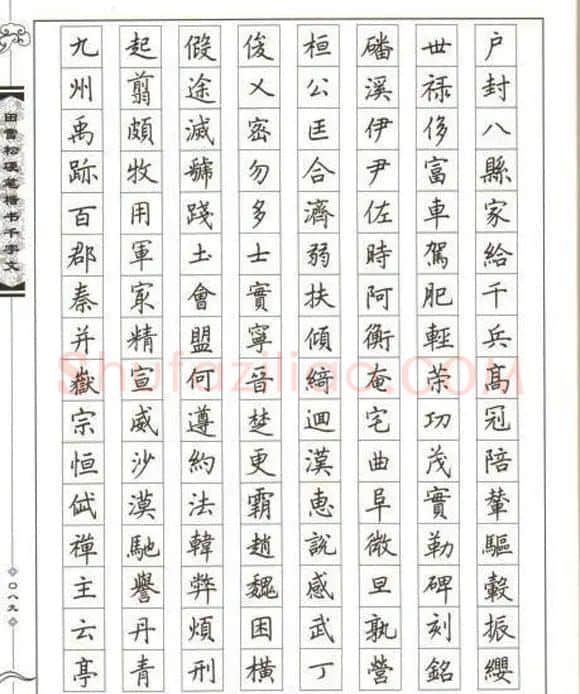 戶封八縣家給千兵高冠陪輦驅轂振纓
世禄侈富車駕肥輕策功茂實勒碑刻銘
磻溪伊尹佐時阿衡奄宅曲阜微旦孰營
桓公匡合濟弱扶傾綺迴漢惠說感武丁
俊乂密勿多士實寧晉楚更霸趙魏困橫
假途滅虢踐土會盟何遵約法韓弊煩刑
起翦頗牧用軍最精宣威沙漠馳譽丹青
九州禹跡百郡秦并嶽宗恒岱禪主云亭
田雪松硬笔楷书千字文
〇八九
Shufaziliao.COM